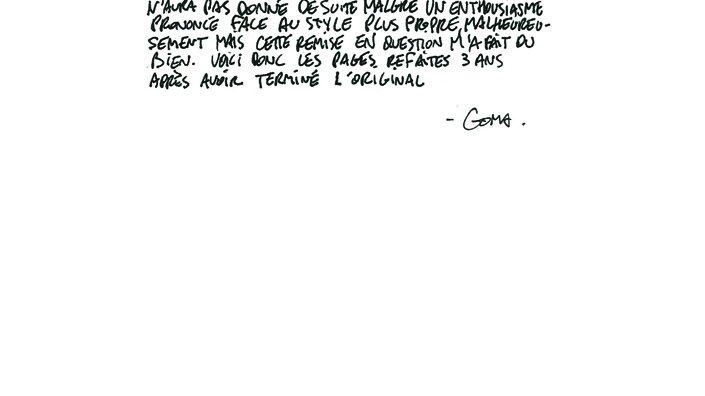 N'AURA PAS DONNÉ DE SUITE MALGRÉ UN ENTHOUSIASME
PRONONCÉ FACE AU STYLE PLUS PROPRE, MALHEUREU-
SEMENT MAIS CETTE REMISE EN QUESTION M'A FAIT DU
BIEN. VOICI DONC LES PAGES REFAITES 3 ANS
APRÈS AVOIR TERMINÉ L'ORIGINAL
- GOMA.